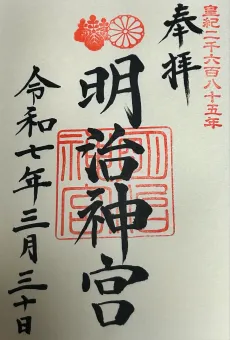 皇紀二千六百八十五年
奉拝
明治神宮
令和七年三月三十日
明治神宮